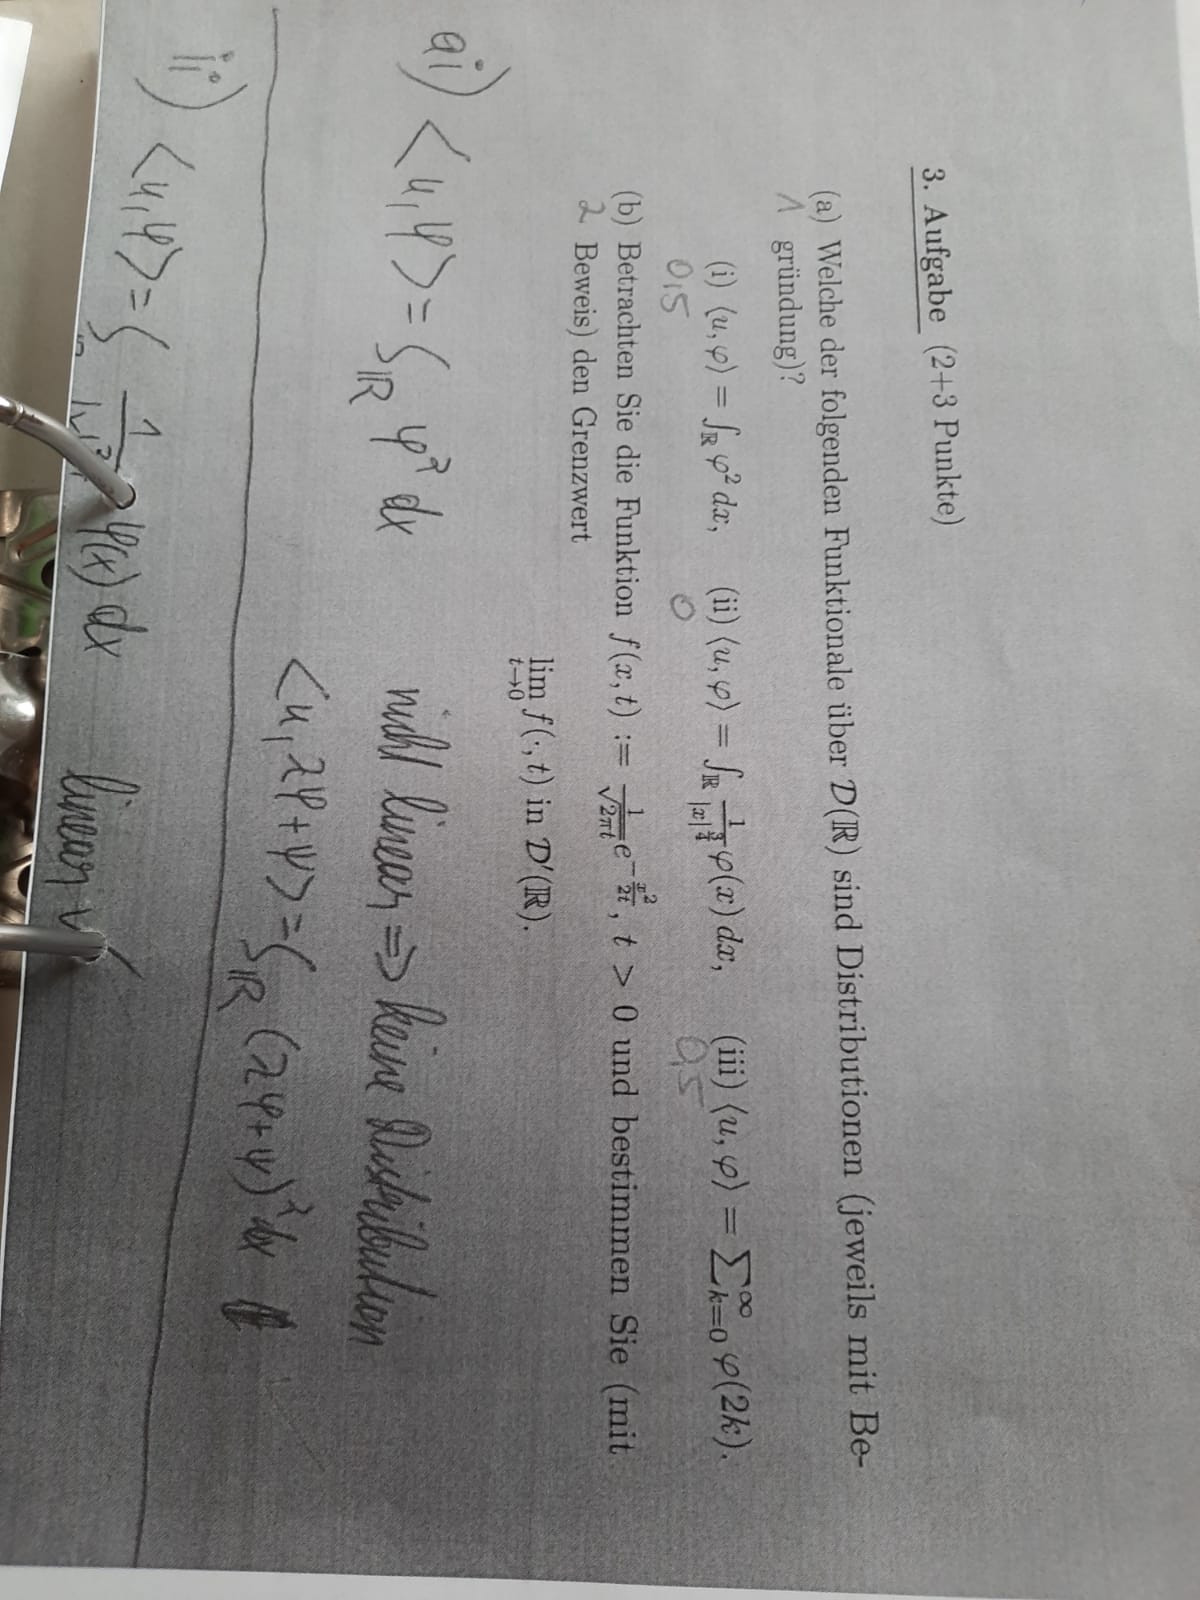 3. Aufgabe (2+3 Punkte)
(a) Welche der folgenden Funktionale über 𝒟(ℝ) sind Distributionen (jeweils mit Be-
1 gründung)?
(i) ⟨u, φ⟩ = ∫_ℝ φ² dx, (ii) ⟨u, φ⟩ = ∫_ℝ 1/|x|^(3/4) φ(x) dx, (iii) ⟨u, φ⟩ = ∑_{k=0}^∞ φ(2k).
0,5 0 0,5
(b) Betrachten Sie die Funktion f(x, t) := 1/√(2πt) e^(−x²/2t), t > 0 und bestimmen Sie (mit
2 Beweis) den Grenzwert
lim_{t→0} f(·, t) in 𝒟′(ℝ).
ai) ⟨u, φ⟩ = ∫_ℝ φ² dx nicht linear ⇒ keine Distribution
⟨u, λφ+ψ⟩ = ∫_ℝ (λφ+ψ)² dx
ii) ⟨u, φ⟩ = ∫ 1/|x|³ φ(x) dx linear ✓